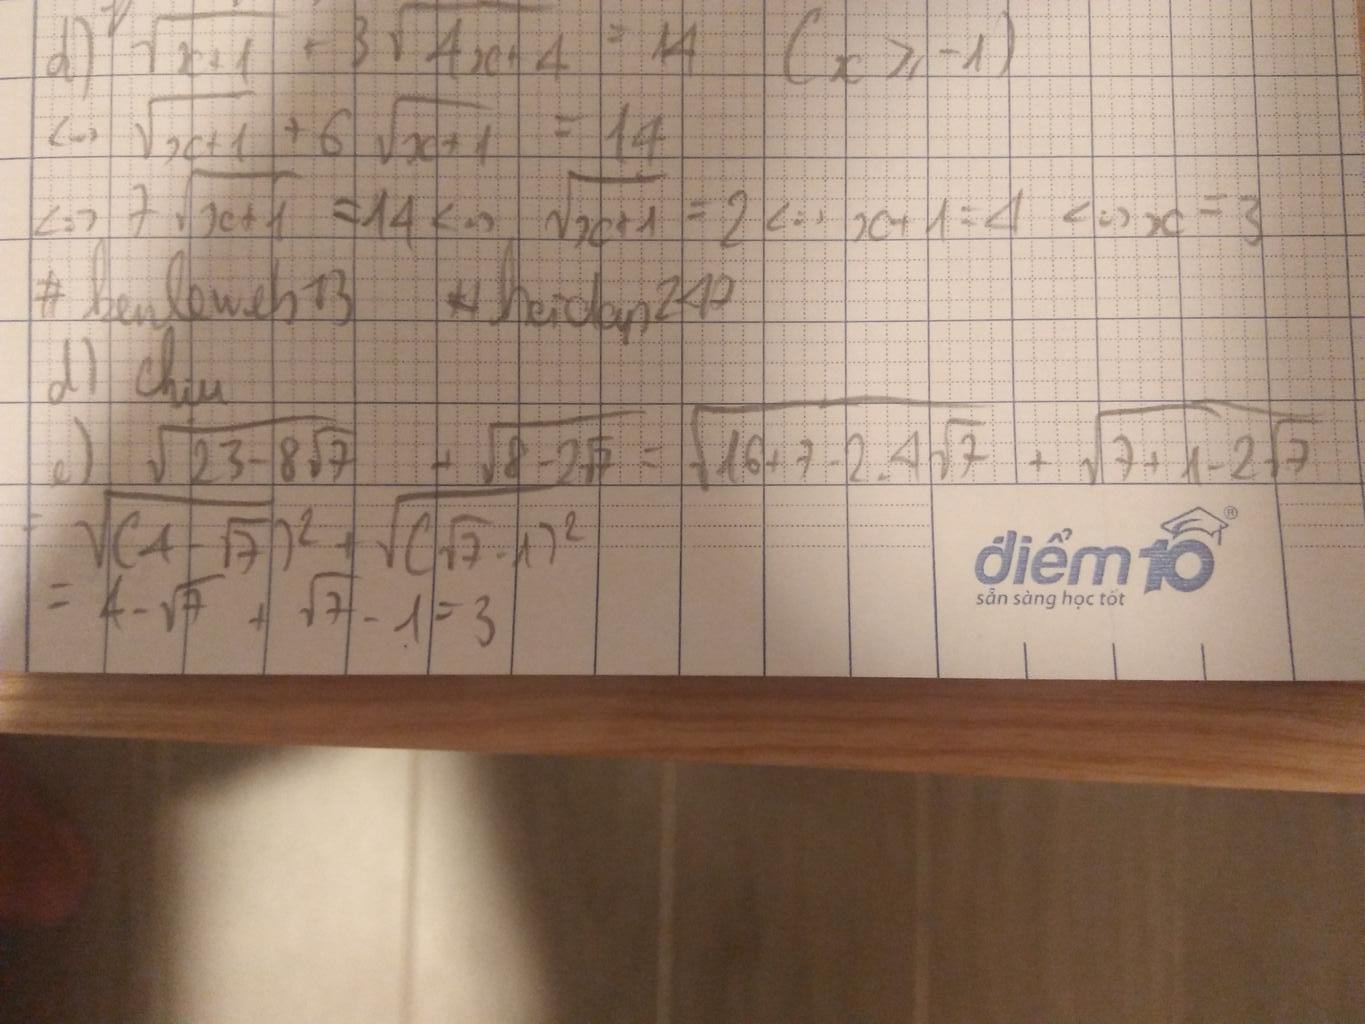 d) √(x+1) + 3√(4x+4) = 14 (x ≥ -1)
<=> √(x+1) + 6√(x+1) = 14
<=> 7√(x+1) = 14 <=> √(x+1) = 2 <=> x+1=4 <=> x=3
d) Chịu
e) √(23-8√7) + √(8-2√7) = √(16+7-2.4√7) + √(7+1-2√7)
= √(4-√7)² + √(√7-1)²
= 4-√7 + √7-1=3
điểm 10®
sẵn sàng học tốt